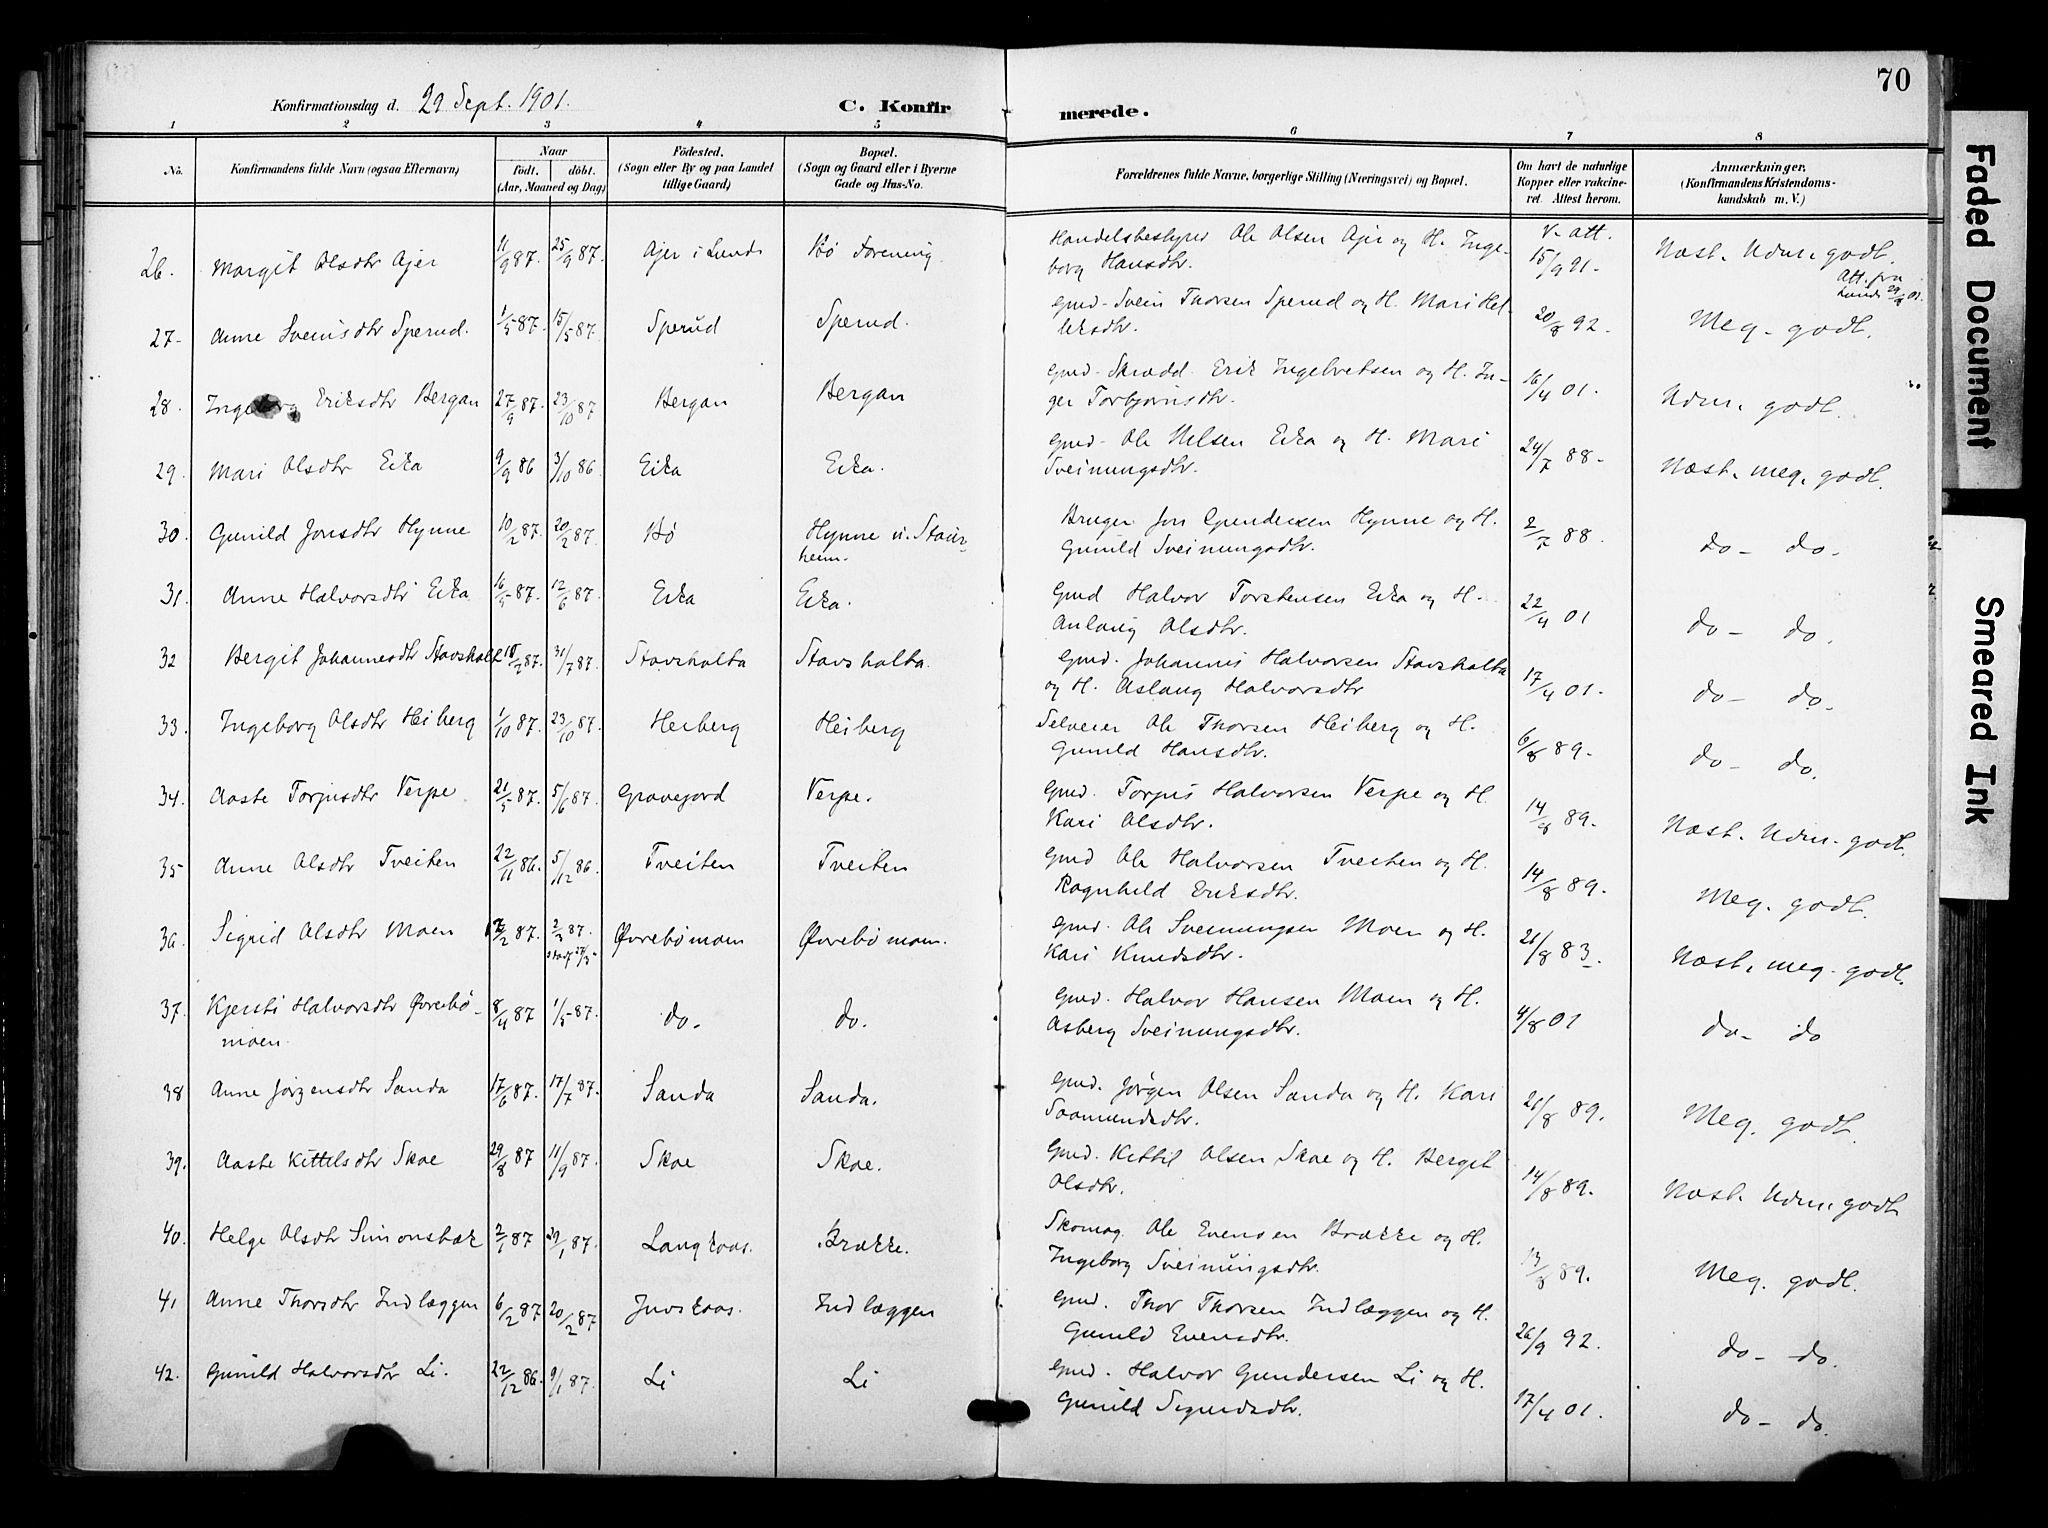 70
Konfirmationsdag d. 29 Sept. 1901.
C. Konfirmerede.
1 2 3 4 5 6 7 8
No. Konfirmandens fulde Navn (ogsaa Efternavn) Naar født. døbt. (Aar, Maaned og Dag) Fødested. (Sogn eller By og paa Landet tillige Gaard) Bopæl. (Sogn og Gaard eller i Byerne Gade og Hus-No. Forældrenes fulde Navne, borgerlige Stilling (Næringsvei) og Bopæl. Om havt de naturlige Kopper eller vakcineret. Attest herom. Anmærkninger. (Konfirmandens Kristendomskundskab m. V.)
26. Margit Olsdtr Ajer 11/9 87. 25/9 87. Ajer i Lunde Bø Forening. Handelsbestyrer Ole Olsen Ajer og H. Inge-
borg Hansdtr. V. att. 15/9 91. Næst. Udm. godt. Att. fra Lunde 29/9 01.
27. Anne Sveinsdtr Sperud. 1/5 87. 15/5 87. Sperud Sperud. Gmd. Svein Thorsen Sperud og H. Mari Hel-
leksdtr. 20/8 92. Meg. godt.
28. Ingeborg Eriksdtr Bergan 27/9 87. 23/10 87 Bergan Bergan Gmd. Skrædd. Erik Ingebretsen og H. In-
ger Torbjørnsdtr. 16/4 01. Udm. godt.
29. Mari Olsdtr Eika 9/9 86 3/10 86. Eika Eika. Gmd. Ole Nelsen Eika og H. Mari
Sveinungsdtr. 24/7 88. Næst. meg. godt.
30. Gunild Jonsdtr Hynne 10/2 87. 20/2 87. Bø Hynne u. Staur-
heim. Bruger Jon Gundersen Hynne og H.
Gunild Sveinungsdtr. 2/7 88. do. do.
31. Anne Halvorsdtr Eika 16/5 87. 12/6 87. Eika Eika. Gmd Halvor Torstensen Eika og H.
Anlaug Olsdtr. 22/4 01 do. do.
32 Bergit Johannesdtr Stavsholt 15/7 87. 31/7 87. Stavsholta Stavsholta. Gmd. Johannes Halvorsen Stavsholta
og H. Aslaug Halvorsdtr 17/4 01. do. do.
33. Ingeborg Olsdtr Heiberg 1/10 87. 23/10 87. Heiberg Heiberg Selveier Ole Thorsen Heiberg og H.
Gunild Hansdtr. 6/8 89. do. do.
34. Aaste Torjusdtr Verpe 21/5 87. 5/6 87. Gravejord Verpe. Gmd. Torjus Halvorsen Verpe og H.
Kari Olsdtr. 14/8 89. Næst. Udm. godt.
35 Anne Olsdtr Tveiten 22/11 86. 5/12 86. Tveiten Tveiten Gmd Ole Halvorsen Tveiten og H.
Ragnhild Eriksdtr. 14/8 89. Meg. godt.
36. Sigrid Olsdtr Moen 17/2 87. 2/3 87. 27/3 Øvrebømoen Øvrebømoen. Gmd. Ole Sveinungsen Moen og H.
Kari Knudsdtr. 21/8 83. Næst. meg. godt.
37. Kjersti Halvorsdtr Øvrebø-
moen. 8/4 87 1/5 87. do. do. Gmd. Halvor Hansen Moen og H.
Asberg Sveinungsdtr. 4/8 01 do. do
38 Anne Jørgensdtr Sanda 17/6 87. 17/7 87. Sanda Sanda. Gmd. Jørgen Olsen Sanda og H. Kari
Saamundsdtr. 21/8 89. Meg. godt.
39. Aaste Kittelsdtr Skoe 29/8 87 11/9 87. Skoe Skoe. Gmd. Kittil Olsen Skoe og H. Bergit
Olsdtr. 14/8 89. Næst. Udm. godt
40. Helge Olsdtr Simonsbæk 2/1 87 29/1 87. Langkaas. Brække. Skomag. Ole Evensen Brække og H.
Ingeborg Sveinungsdtr. 13/8 89. Meg. godt.
41 Anne Thorsdtr Indlæggen 6/2 87 20/2 87 Juvskaas. Indlæggen Gmd. Thor Thorsen Indlæggen og H.
Gunild Evensdtr. 26/9 92. do. do.
42. Gunild Halvorsdtr Li. 22/12 86. 9/1 87. Li Li Gmd. Halvor Gundersen Li og H.
Gunild Sigurdsdtr. 17/4 01. do. do.
Faded Document
Smeared Ink